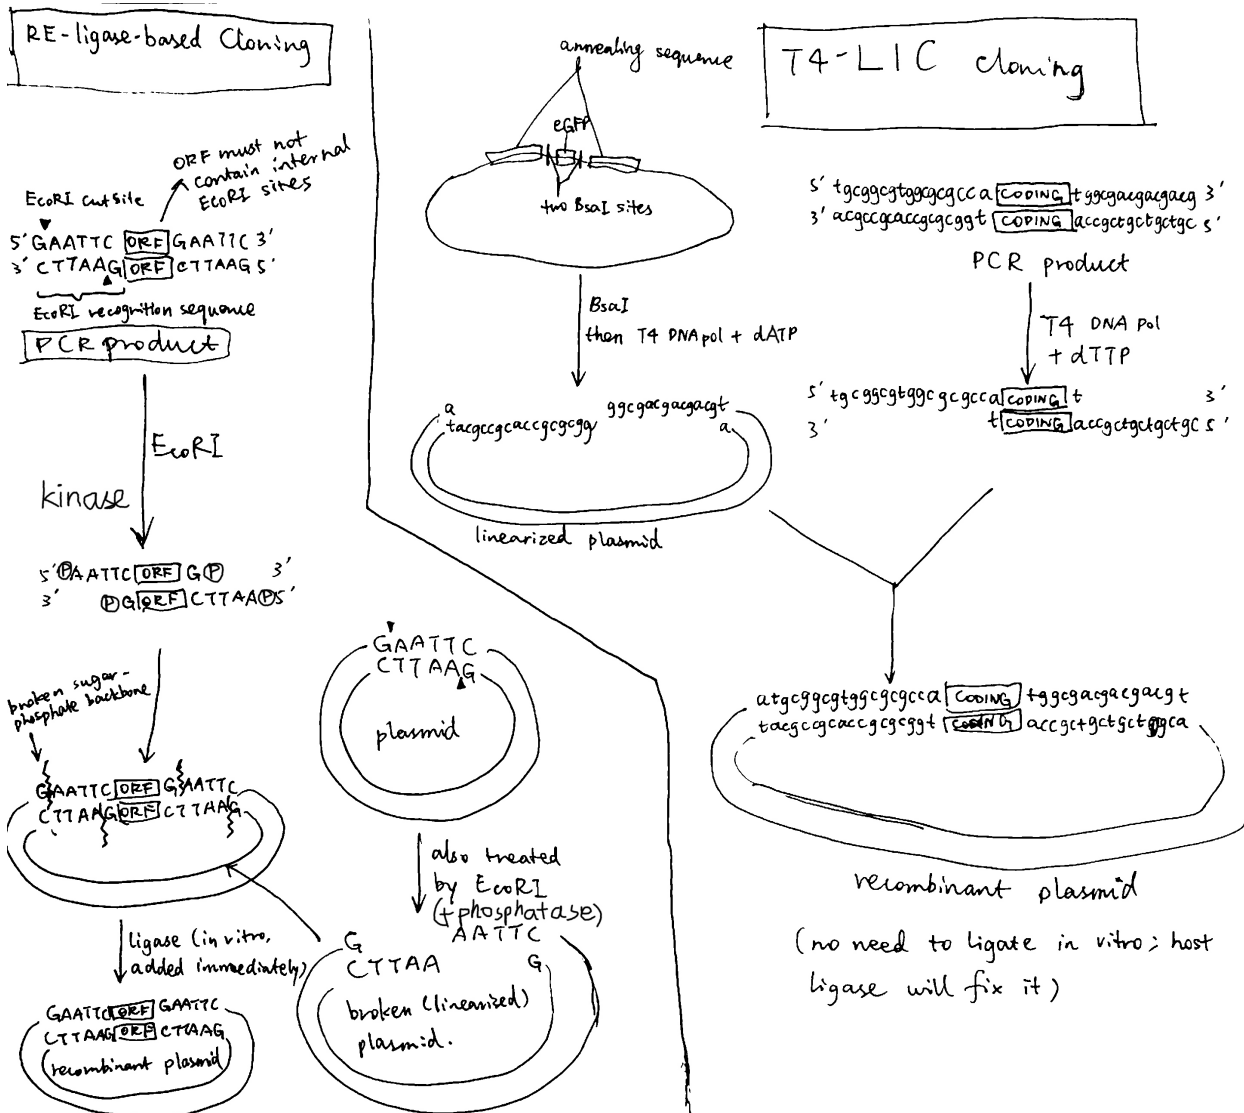 RE-ligase-based Cloning
ORF must not
contain internal
EcoRI sites
EcoRI cutsite
5' GAATTC ORF GAATTC 3'
3' CTTAAG ORF CTTAAG 5'
EcoRI recognition sequence
PCR product
EcoRI
kinase
5' P AATTC ORF G P 3'
3' P G ORF CTTAA P 5'
broken sugar-
phosphate backbone
GAATTC ORF GAATTC
CTTAAG ORF CTTAAG
ligase (in vitro,
added immediately)
GAATTC ORF GAATTC
CTTAAG ORF CTTAAG
(recombinant plasmid)
GAATTC
CTTAAG
plasmid
also treated
by EcoRI
(+phosphatase)
G AATTC
CTTAA G
broken (linearized)
plasmid.
T4-LIC cloning
annealing sequence
eGFP
two BsaI sites
BsaI
then T4 DNA pol + dATP
a ggcgacgacgacgt
tacgccgcaccgcgcgg a
linearized plasmid
5' tgcggcgtggcgcgcca CODING tggcgacgacgacg 3'
3' acgccgcaccgcgcggt CODING accgctgctgctgc 5'
PCR product
T4 DNA pol
+ dTTP
5' tgcggcgtggcgcgcca CODING t 3'
3' t CODING accgctgctgctgc 5'
atgcggcgtggcgcgcca CODING tggcgacgacgacgt
tacgccgcaccgcgcggt CODING accgctgctgctgca
recombinant plasmid
(no need to ligate in vitro; host
ligase will fix it)